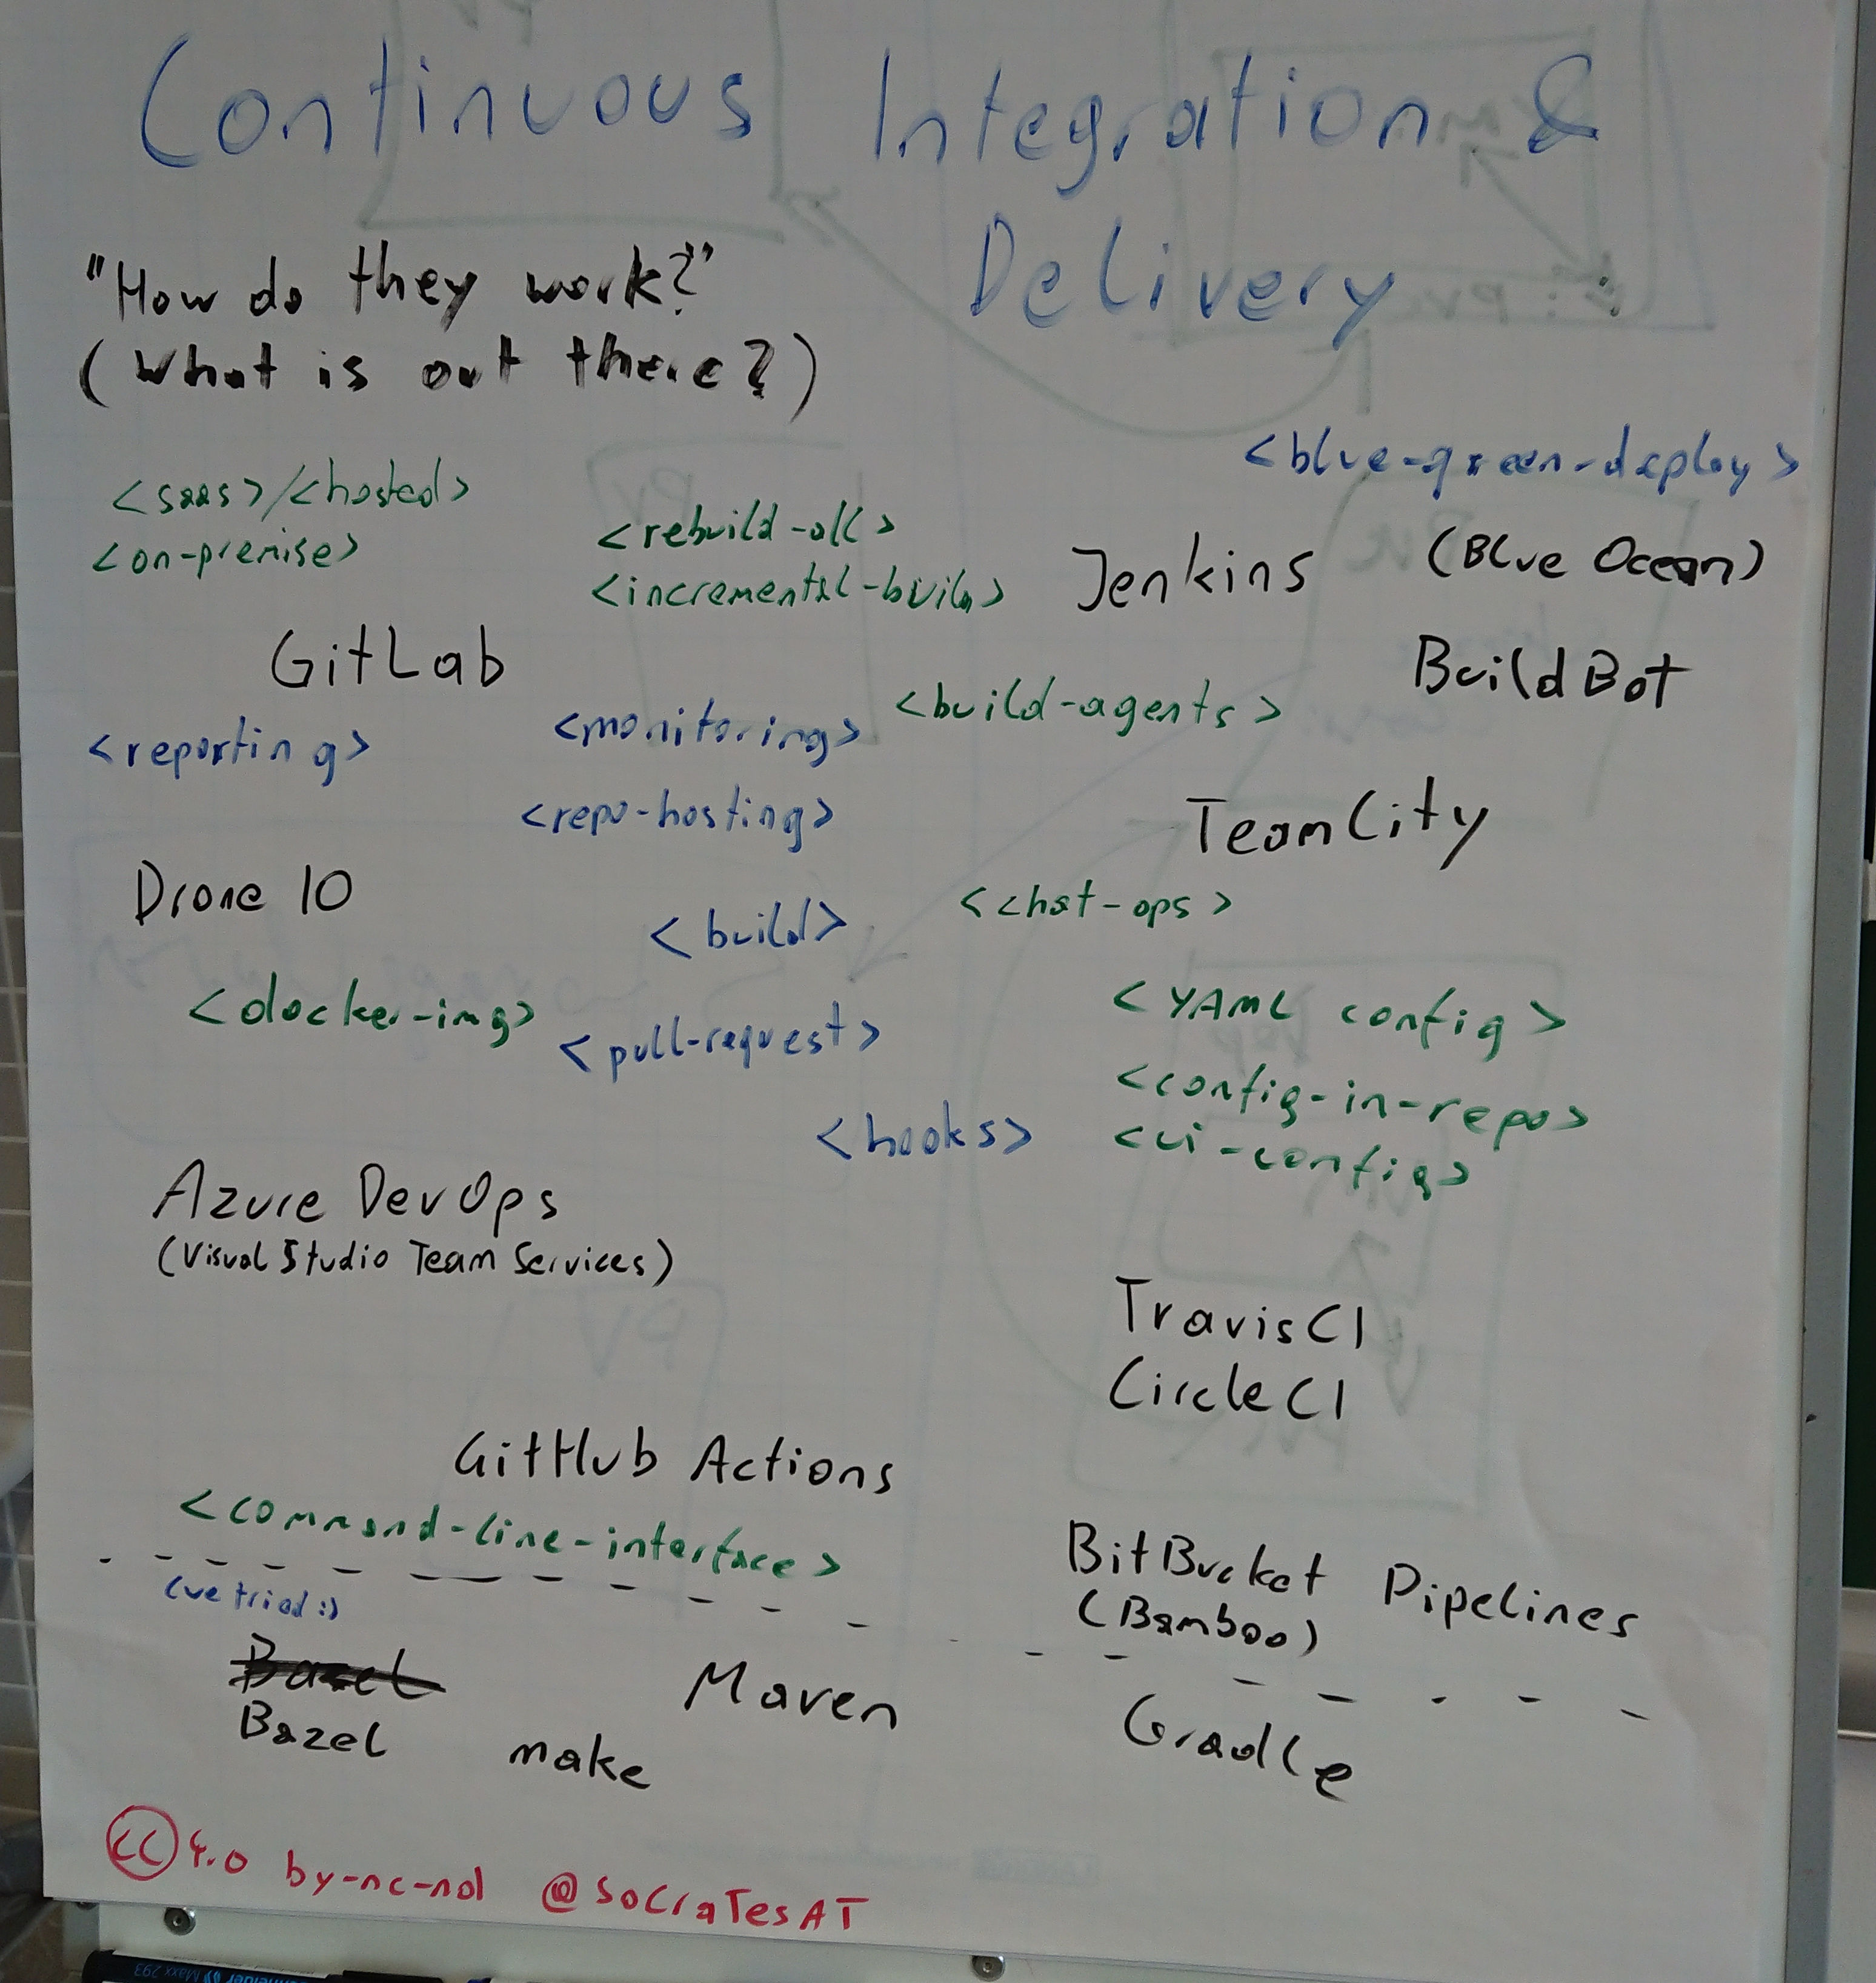 Continuous Integration &
Delivery
"How do they work?"
(What is out there?)
<blue-green-deploy>
<saas>/<hosted>
<on-premise>
<rebuild-all>
<incremental-build>
Jenkins (Blue Ocean)
GitLab
BuildBot
<build-agents>
<reporting>
<monitoring>
<repo-hosting>
TeamCity
Drone IO
<build>
<chat-ops>
<docker-img>
<pull-request>
<YAML config>
<config-in-repo>
<ui-config>
<hooks>
Azure DevOps
(Visual Studio Team Services)
TravisCI
CircleCI
GitHub Actions
<command-line-interface>
BitBucket Pipelines
(Bamboo)
(we tried :)
Bazel
Maven
Gradle
Bazel
make
CC 4.0 by-nc-nd @SoCraTesAT
Maxx 293